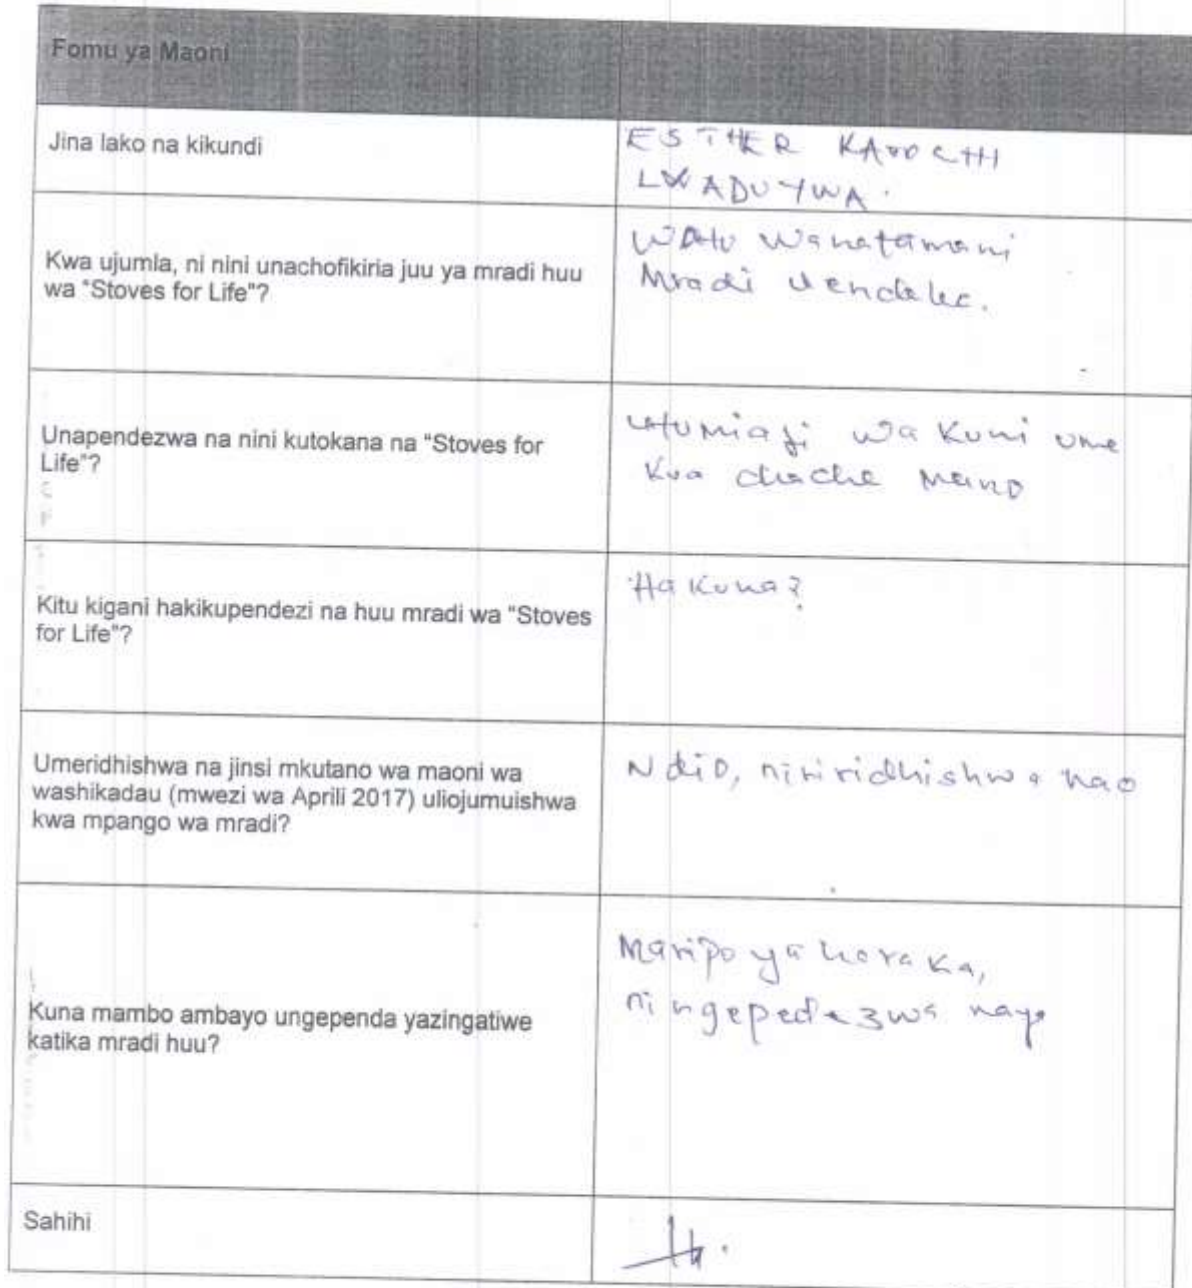 Fomu ya Maoni
Jina lako na kikundi
ESTHER
LWADUYWA.
Kwa ujumla, ni nini unachofikiria juu ya mradi huu
wa "Stoves for Life"?
Watu wanatamani
Mradi uendelee.
Unapendezwa na nini kutokana na "Stoves for
Life"?
utumiaji wa Kuni ume
Kua chache
Kitu kigani hakikupendezi na huu mradi wa "Stoves
for Life"?
Hakuna?
Umeridhishwa na jinsi mkutano wa maoni wa
washikadau (mwezi wa Aprili 2017) uliojumuishwa
kwa mpango wa mradi?
Ndio, niriridhishwa nao
Kuna mambo ambayo ungependa yazingatiwe
katika mradi huu?
Maripo ya haraka,
ningepedezwa nayo
Sahihi